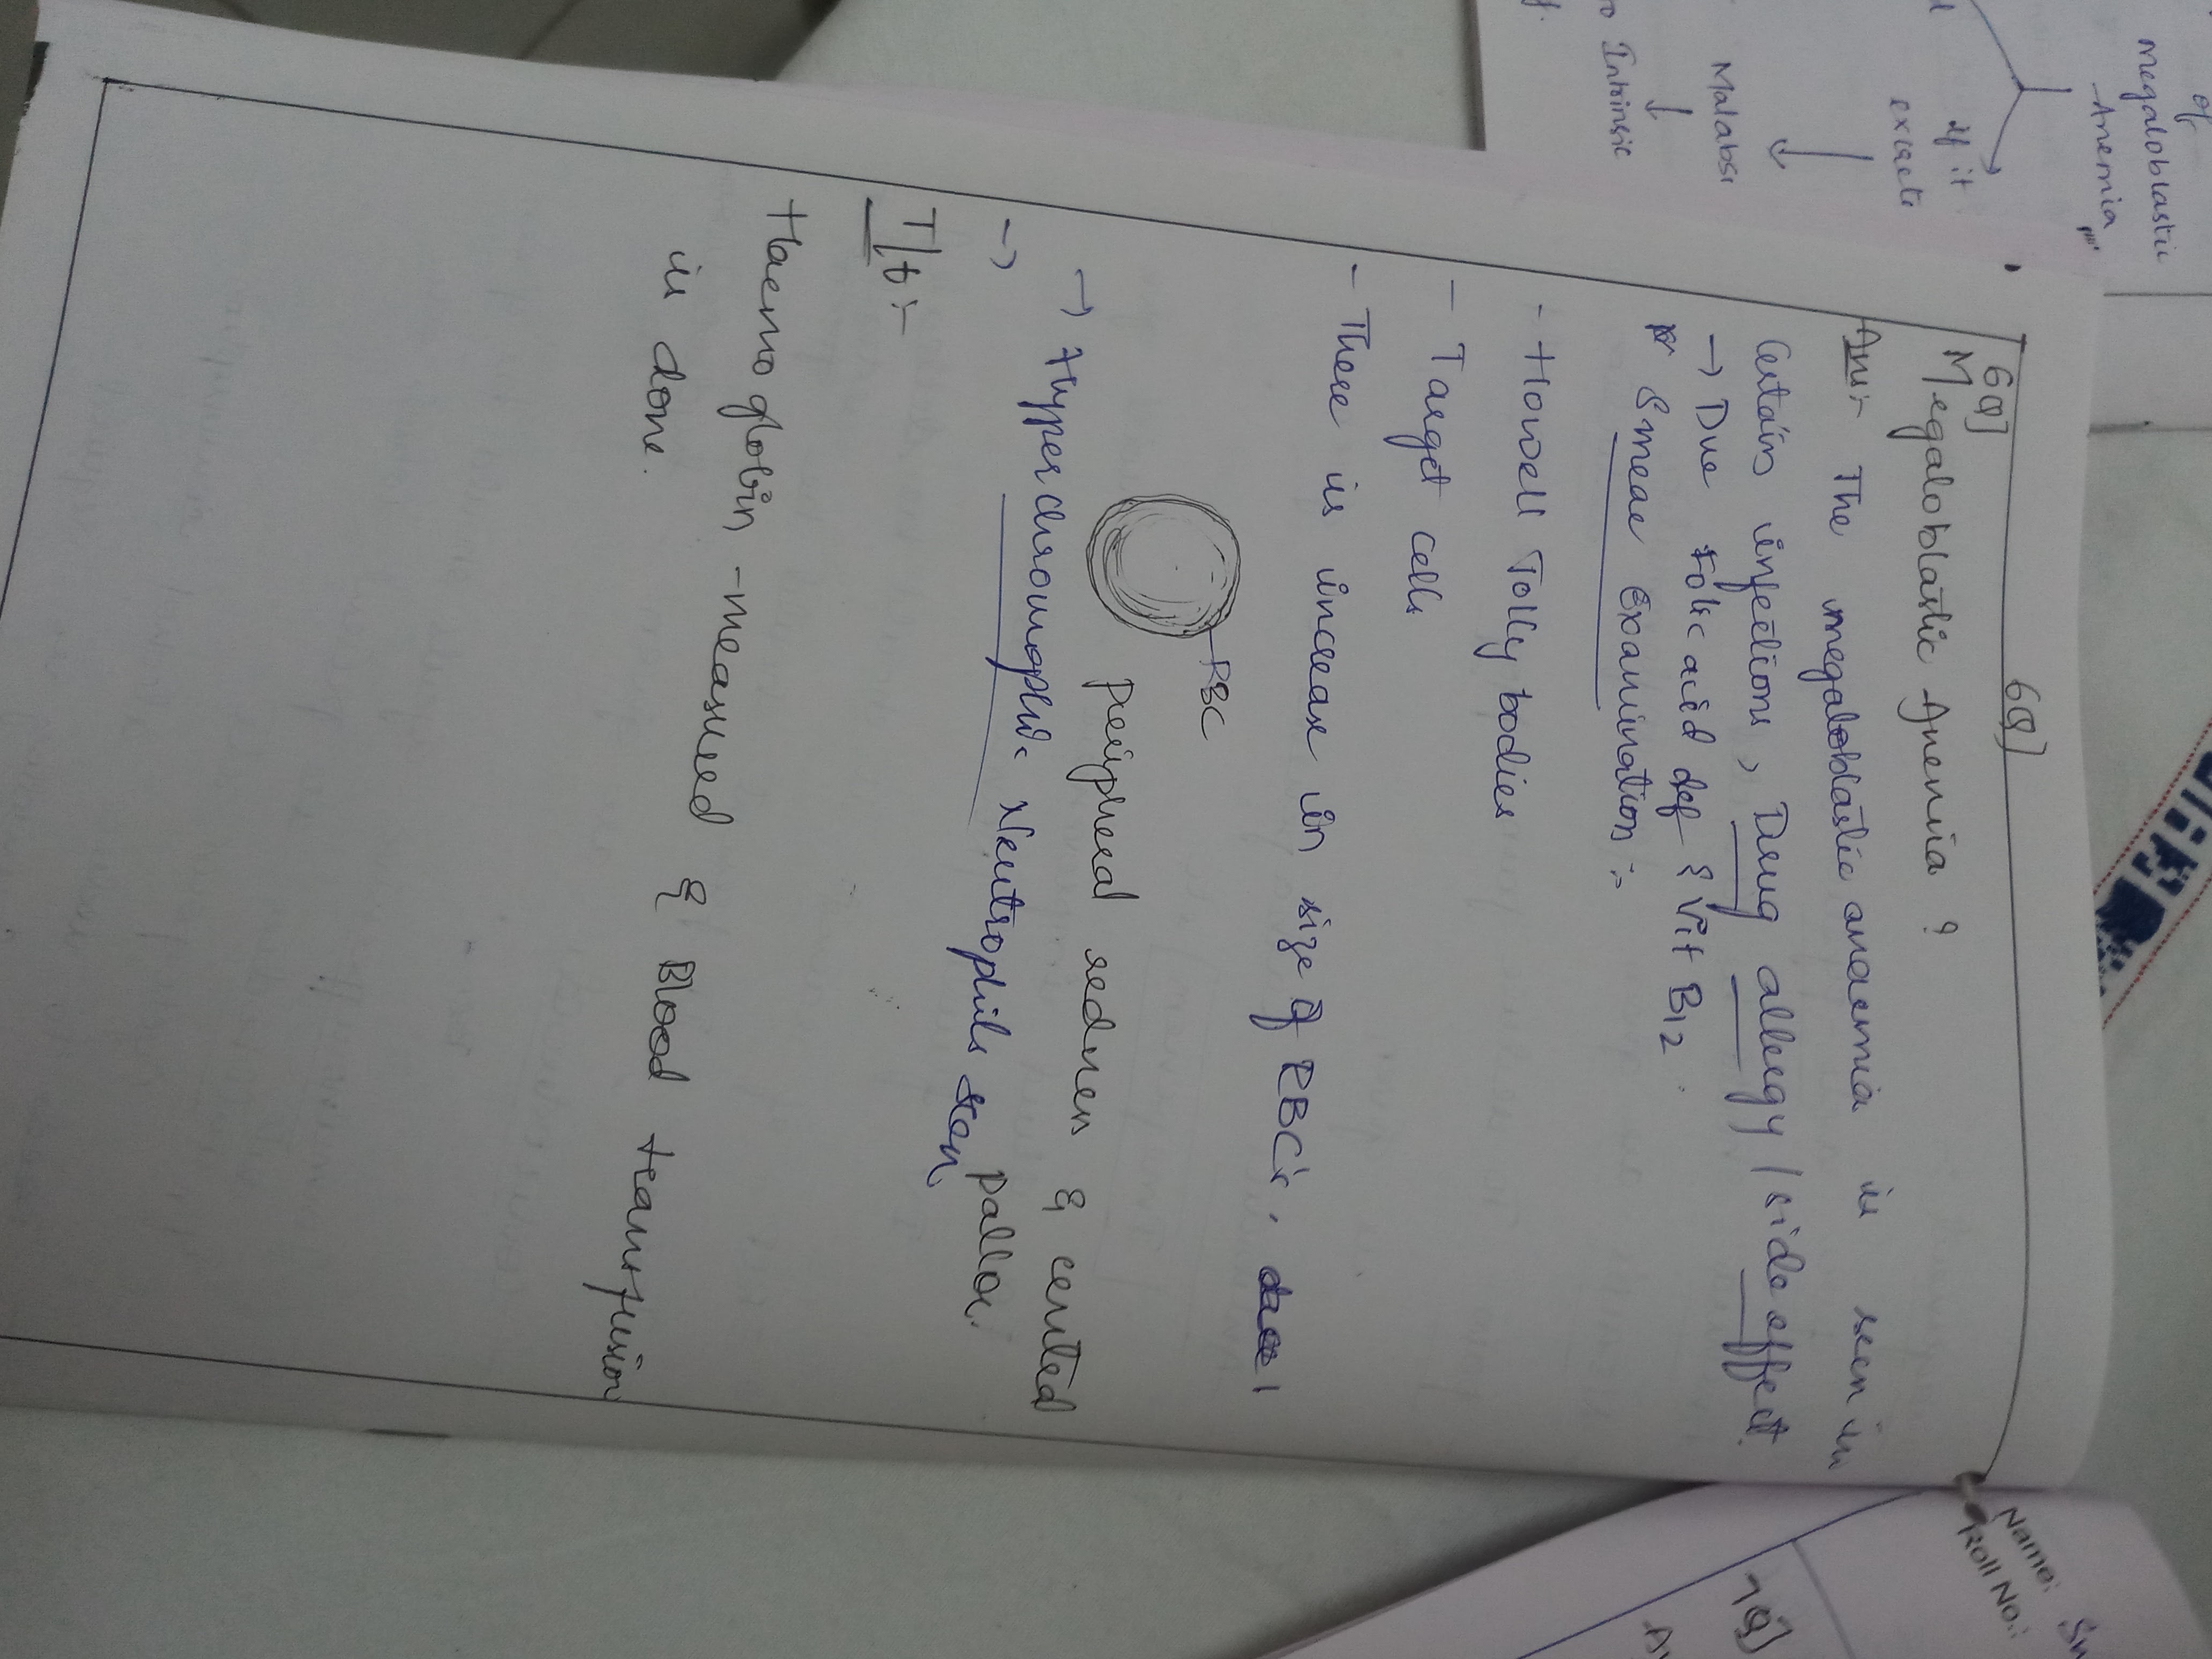 6Q]
6Q]
Megaloblastic Anemia ?
Ans:- The megaloblastic anaemia is seen in
certain infections, Drug allergy / side effect.
→ Due Folic acid def & Vit B12.
* Smear Examination :-
- Howell Jolly bodies
- Target cells
- There is increase in size of RBC's,
RBC
peripheral redness & centred
pallor.
→ Hyperchromophic Neutrophils seen
→
T/t :-
Haemoglobin - measured & Blood transfusion
is done.
of
megaloblastic
Anemia
if it
excrete
Malabs
Intrinsic
Name:
Roll No.:
7Q]